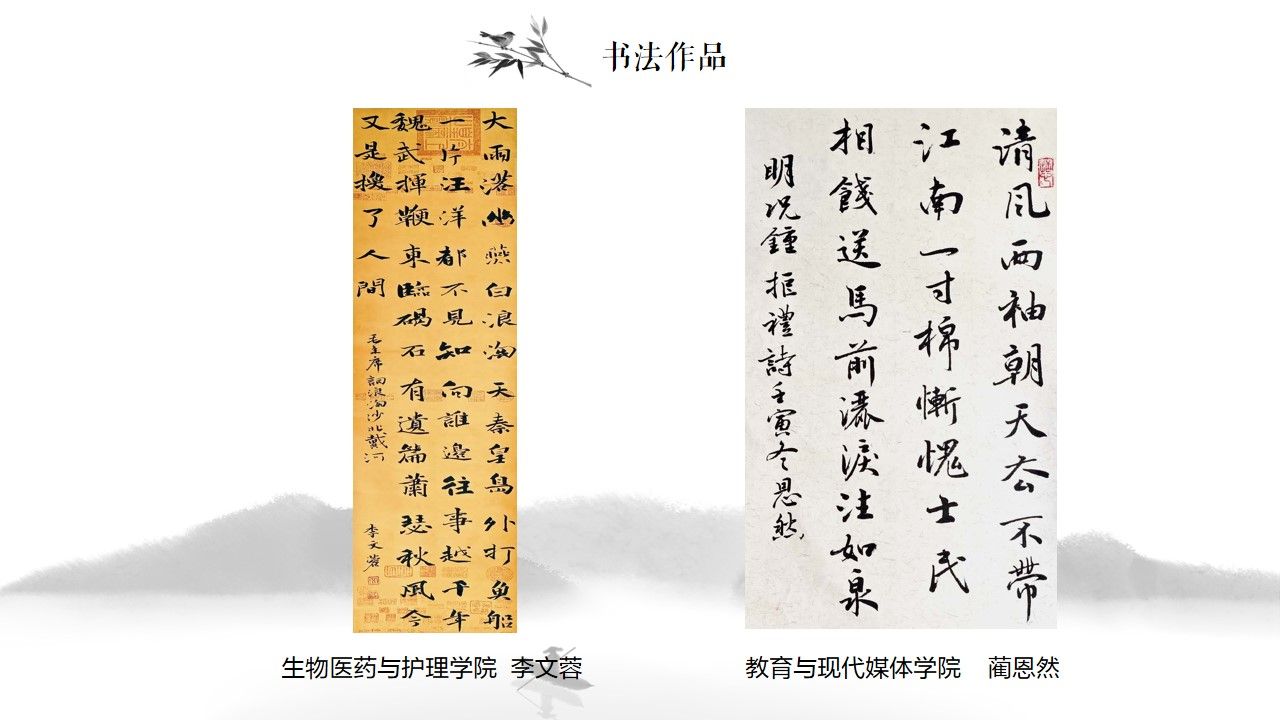 书法作品
大雨落幽燕白浪淘天秦皇島外打魚船
一片汪洋都不見知向誰邊往事越千年
魏武揮鞭東臨碣石有遺篇蕭瑟秋風今
又是換了人間
毛主席詞浪淘沙北戴河
李文蓉
清风两袖朝天去不帶
江南一寸棉慚愧士民
相餞送馬前灑淚注如泉
明况鍾拒禮詩壬寅冬恩然
生物医药与护理学院 李文蓉
教育与现代媒体学院 蔺恩然